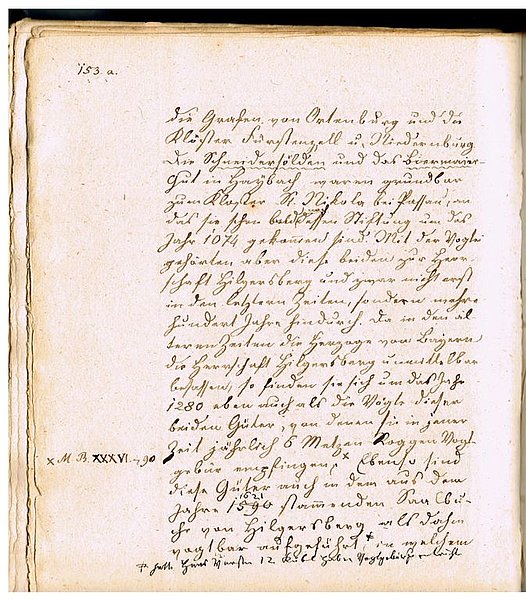 153. a.
die Grafen von Ortenburg und die
Klöster Fürstenzell u. Niedernburg.
Die Schneidersölden und das Boermaier-
Gut in Haybach waren grundbar
zum Kloster St. Nikola bei Passau, an
das sie schon bald nach dessen Stiftung um das
Jahr 1074 gekommen sind. Mit der Vogtei
gehörten aber diese beiden zur Herr-
schaft Hilgersberg und zwar nicht erst
in den letztern Zeiten, sondern mehre
hundert Jahre hindurch. Da in den äl-
teren Zeiten die Herzoge von Bayern
die Herrschaft Hilgersberg unmittelbar
besassen, so finden sie sich um das Jahr
1280 eben auch als die Vögte dieser
beiden Güter, von denen sie in jener
Zeit jährlich 6 Metzen Roggen Vogt-
x M. B. XXXVI. 90
gebür empfingen. x Ebenso sind
diese Güter auch in dem aus dem
1621
Jahre 1590 stammenden Saalbu-
che von Hilgersberg als dahin
vogtbar aufgeführt, in welchem
12